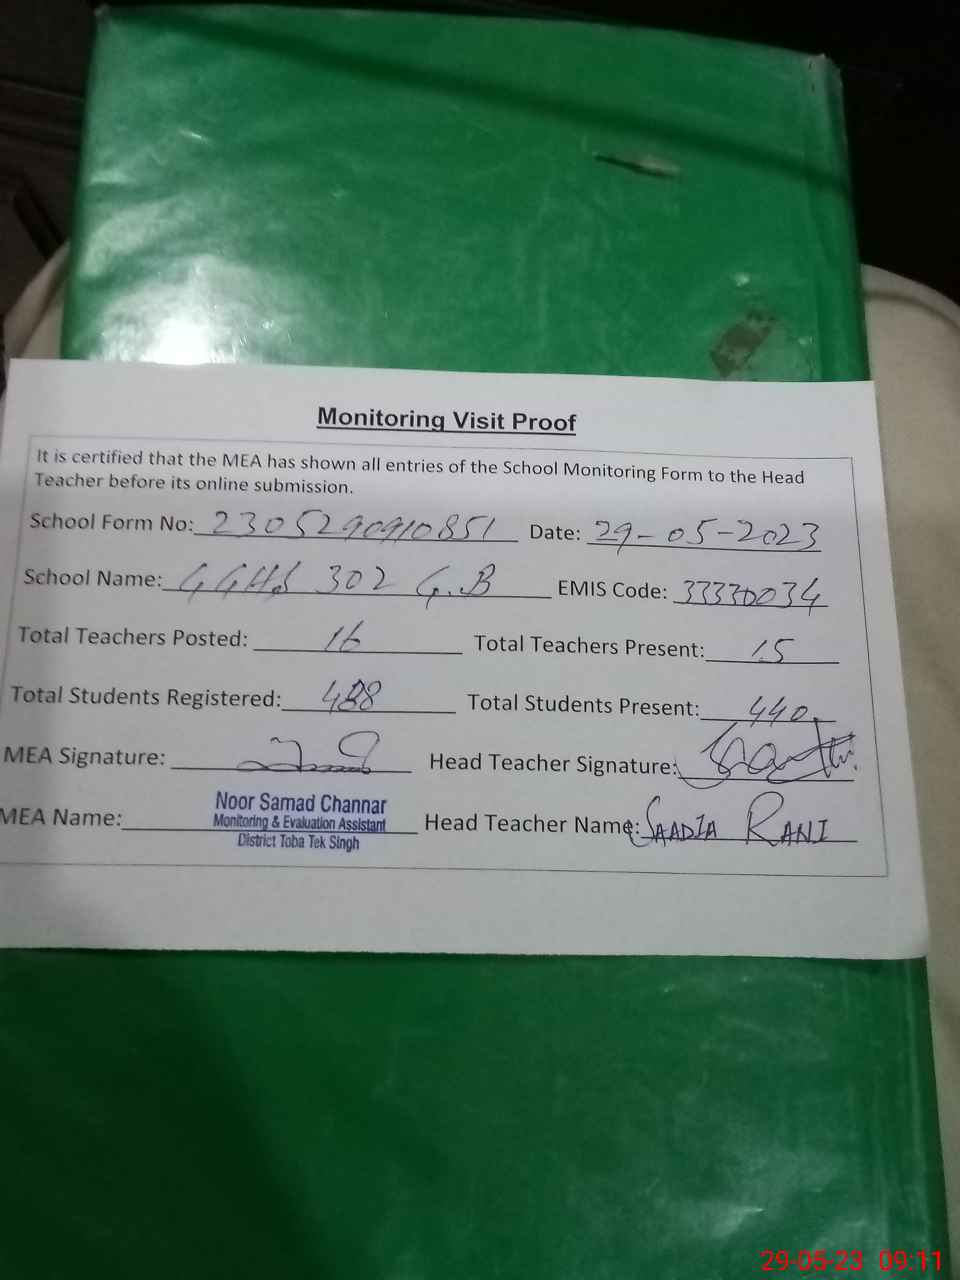 Monitoring Visit Proof
It is certified that the MEA has shown all entries of the School Monitoring Form to the Head
Teacher before its online submission.
School Form No: 2305290910851 Date: 29-05-2023
School Name: GGHS 302 G.B EMIS Code: 33330034
Total Teachers Posted: 16 Total Teachers Present: 15
Total Students Registered: 488 Total Students Present: 440
MEA Signature: Head Teacher Signature:
MEA Name: Noor Samad Channar
Monitoring & Evaluation Assistant
District Toba Tek Singh
Head Teacher Name: SAADIA RANI
29-05-23 09:11